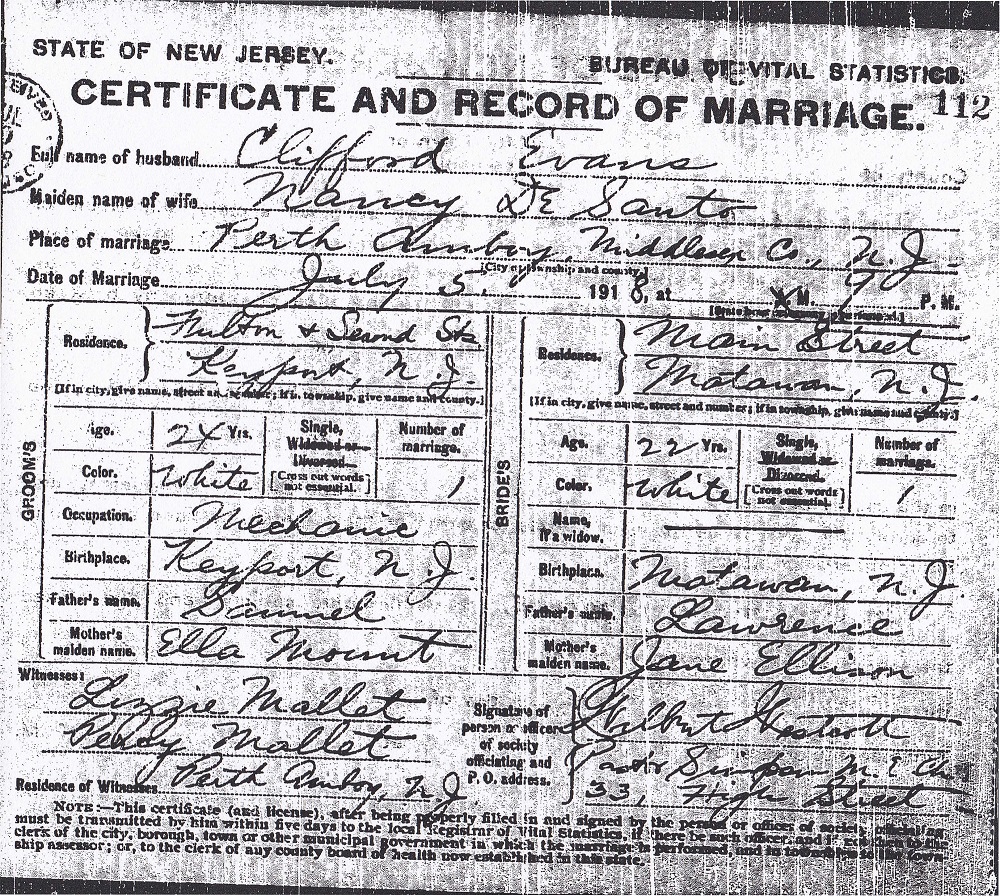 STATE OF NEW JERSEY.
BUREAU OF VITAL STATISTICS.
CERTIFICATE AND RECORD OF MARRIAGE. 112
Full name of husband Clifford Evans
Maiden name of wife Nancy De Santo
Place of marriage Perth Amboy, Middlesex Co., N. J.
[City or township and county]
Date of Marriage July 5, 1918, at M. 9 P. M.
GROOM'S
Residence. Fulton & Second Sts
Keyport, N. J.
[If in city, give name, street and number; if in township, give name and county.]
Age. 24 Yrs.
Single, Widowed or Divorced.
[Cross out words not essential.]
Number of marriage. 1
Color. White
Occupation. Mechanic
Birthplace. Keyport, N. J.
Father's name. Samuel
Mother's maiden name. Ella Mount
BRIDE'S
Residence. Main Street
Matawan, N. J.
[If in city, give name, street and number; if in township, give name and county.]
Age. 22 Yrs.
Single, Widowed or Divorced.
[Cross out words not essential.]
Number of marriage. 1
Color. White
Name, if a widow.
Birthplace. Matawan, N. J.
Father's name. Lawrence
Mother's maiden name. Jane Ellison
Witnesses:
Lizzie Mallet
Percy Mallet
Residence of Witnesses Perth Amboy, N. J.
Signature of person or officer of society officiating and P. O. address.
Wilbur Westcott
Pastor Simpson M. E. Ch
33, High Street
NOTE:—This certificate (and license), after being properly filled in and signed by the person or officer of society officiating,
must be transmitted by him within five days to the local Registrar of Vital Statistics, if there be such officer, and if not then to the
clerk of the city, borough, town or other municipal government in which the marriage is performed, and in townships to the town-
ship assessor; or, to the clerk of any county board of health now established in this state.